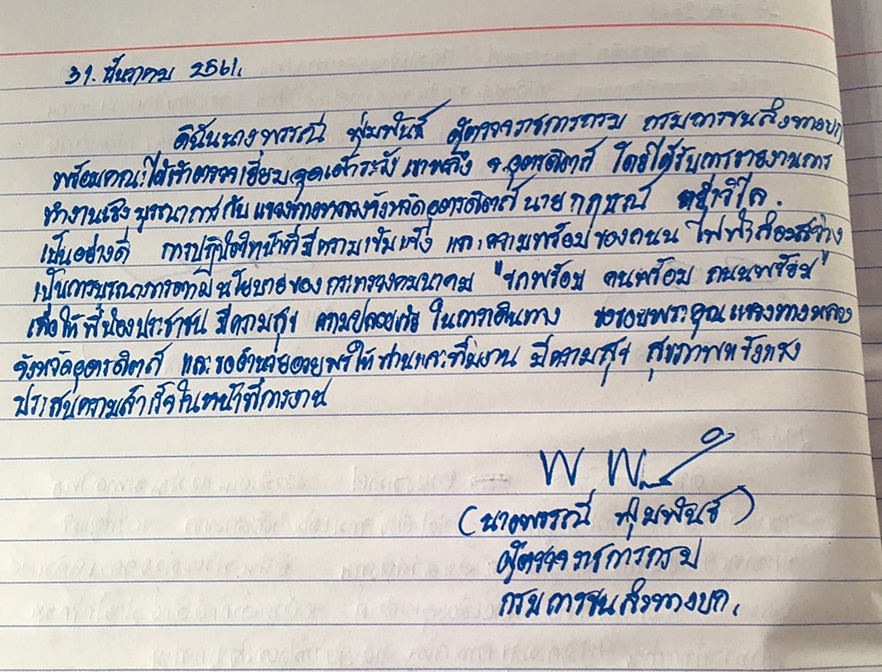 31 ธันวาคม 2561.
ดิฉันนางพรรณี พุ่มพันธ์ ผู้ตรวจราชการกรม กรมการขนส่งทางบก
พร้อมคณะได้เข้าตรวจเยี่ยมจุดเฝ้าระวัง เขาพลึง จ.อุตรดิตถ์ โดยได้รับการรายงานการ
ทำงานเชิงบูรณาการกับแขวงทางหลวงจังหวัดอุตรดิตถ์ นายกฤษณ์
เป็นอย่างดี การปฏิบัติหน้าที่มีความเข้มแข็ง และความพร้อมของถนน ไฟฟ้าส่องสว่าง
เป็นการบูรณาการตามนโยบายของกระทรวงคมนาคม "รถพร้อม คนพร้อม ถนนพร้อม"
เพื่อให้พี่น้องประชาชน มีความสุข ความปลอดภัย ในการเดินทาง ขอขอบพระคุณแขวงทางหลวง
จังหวัดอุตรดิตถ์ และขออำนวยอวยพรให้ท่านและทีมงาน มีความสุข สุขภาพแข็งแรง
ประสบความสำเร็จในหน้าที่การงาน
(นางพรรณี พุ่มพันธ์)
ผู้ตรวจราชการกรม
กรมการขนส่งทางบก.